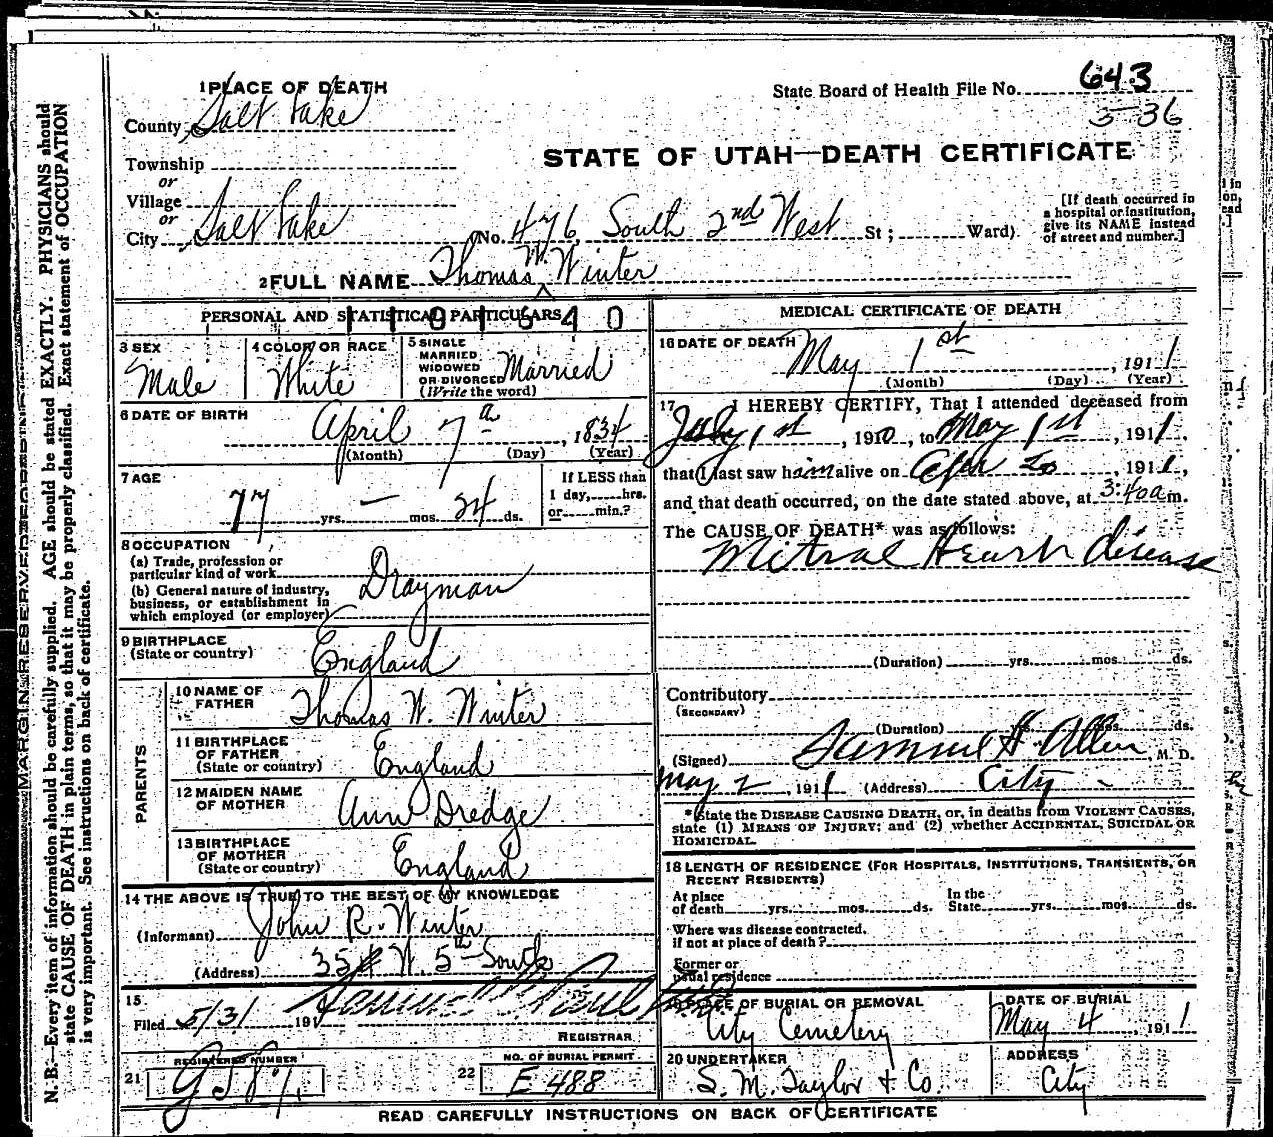 1 PLACE OF DEATH
State Board of Health File No. 643
5-36
County Salt Lake
STATE OF UTAH—DEATH CERTIFICATE
Township
or
Village
or
City Salt Lake (No. 476 South 2nd West St ; Ward)
[If death occurred in
a hospital or institution,
give its NAME instead
of street and number.]
2 FULL NAME Thomas W. Winter
PERSONAL AND STATISTICAL PARTICULARS
3 SEX
Male
4 COLOR OR RACE
White
5 SINGLE
MARRIED
WIDOWED
OR DIVORCED
(Write the word)
Married
6 DATE OF BIRTH
April 7 , 1834
(Month) (Day) (Year)
7 AGE
77 yrs. — mos. 24 ds.
If LESS than
1 day, hrs.
or min.?
8 OCCUPATION
(a) Trade, profession or
particular kind of work
(b) General nature of industry,
business, or establishment in
which employed (or employer)
Drayman
9 BIRTHPLACE
(State or country)
England
PARENTS
10 NAME OF
FATHER
Thomas W. Winter
11 BIRTHPLACE
OF FATHER
(State or country)
England
12 MAIDEN NAME
OF MOTHER
Ann Dredge
13 BIRTHPLACE
OF MOTHER
(State or country)
England
14 THE ABOVE IS TRUE TO THE BEST OF MY KNOWLEDGE
(Informant) John R. Winter
(Address) W. 5th South
15
Filed 5/31 191
REGISTRAR
21
REGISTERED NUMBER
22
NO. OF BURIAL PERMIT
E 488
MEDICAL CERTIFICATE OF DEATH
16 DATE OF DEATH
May 1st , 1911
(Month) (Day) (Year)
17 I HEREBY CERTIFY, That I attended deceased from
July 1st , 1910 , to May 1st , 1911 ,
that I last saw him alive on Apr 30 , 1911 ,
and that death occurred, on the date stated above, at 3:40 a m.
The CAUSE OF DEATH* was as follows:
Mitral Heart disease
(Duration) yrs. mos. ds.
Contributory
(SECONDARY)
(Duration) mos. ds.
(Signed) Samuel H. Allen , M. D.
May 2 , 1911 (Address) City
* State the DISEASE CAUSING DEATH, or, in deaths from VIOLENT CAUSES,
state (1) MEANS OF INJURY; and (2) whether ACCIDENTAL, SUICIDAL OR
HOMICIDAL.
18 LENGTH OF RESIDENCE (FOR HOSPITALS, INSTITUTIONS, TRANSIENTS, OR
RECENT RESIDENTS)
At place
of death yrs. mos. ds.
In the
State yrs. mos. ds.
Where was disease contracted.
if not at place of death ?
Former or
usual residence
19 PLACE OF BURIAL OR REMOVAL
City Cemetery
DATE OF BURIAL
May 4 , 1911
20 UNDERTAKER
S. M. Taylor & Co.
ADDRESS
City
READ CAREFULLY INSTRUCTIONS ON BACK OF CERTIFICATE
MARGIN RESERVED FOR BINDING
N. B.—Every item of information should be carefully supplied. AGE should be stated EXACTLY. PHYSICIANS should
state CAUSE OF DEATH in plain terms, so that it may be properly classified. Exact statement of OCCUPATION
is very important. See instructions on back of certificate.